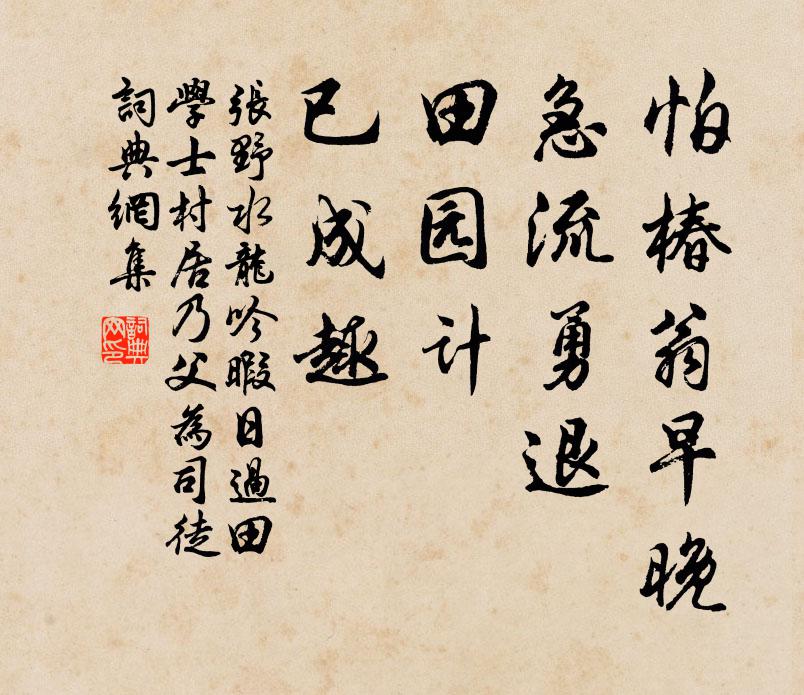 怕椿翁早晚
急流勇退
田园计
已成趣
張野水龍吟暇日過田
學士村居乃父為司徒
詞典網集
詞典網印